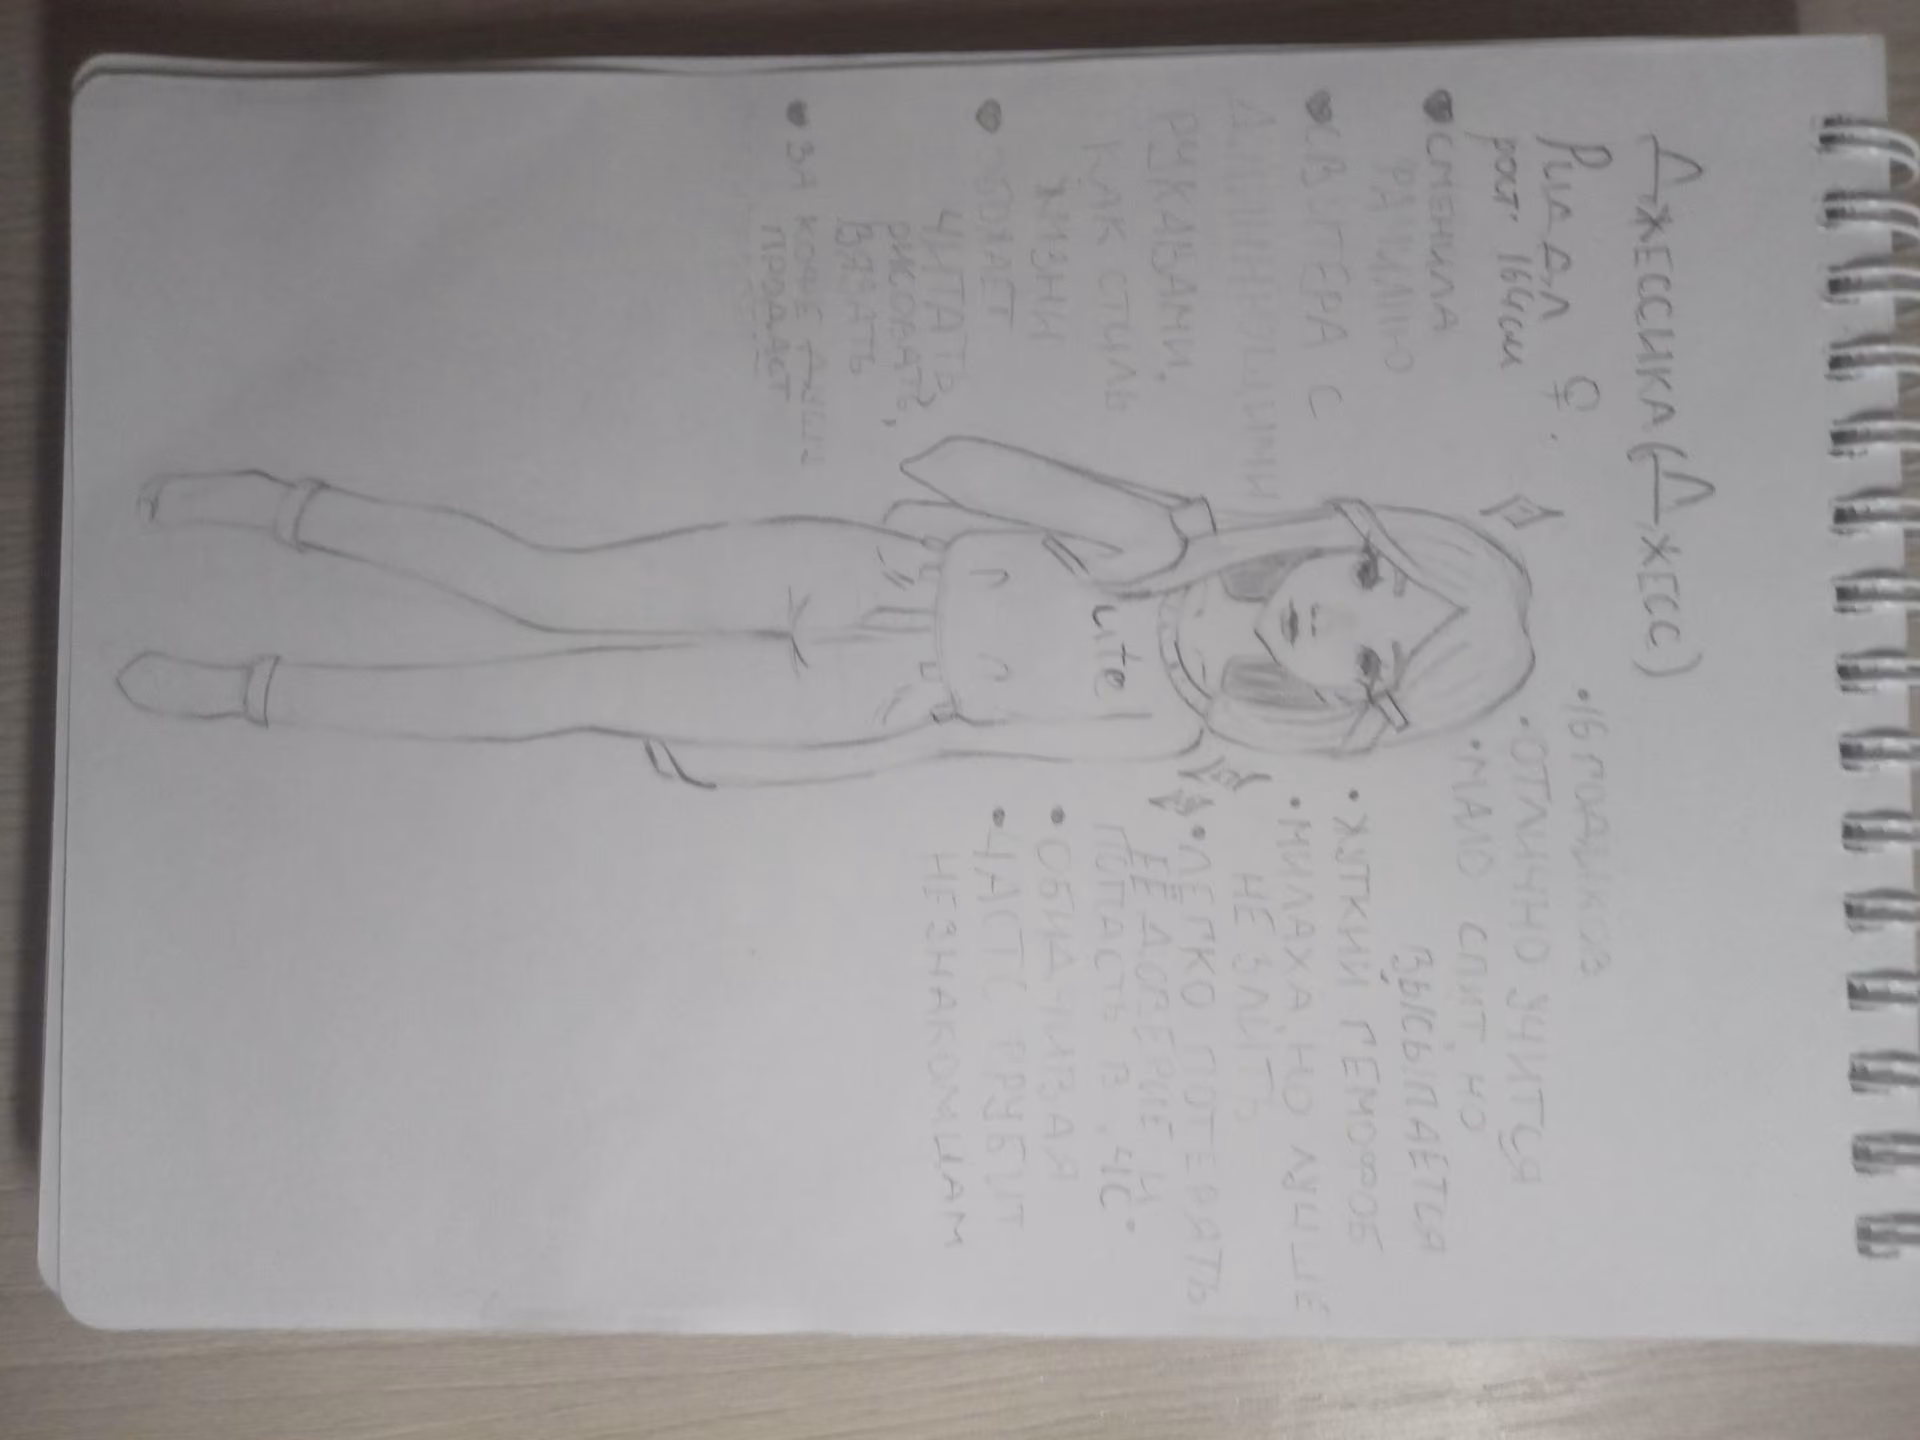 ДЖЕССИКА (ДЖЕСС)
РИДДЛ ♀
рост 164см
СМЕНИЛА
ФАМИЛИЮ
СВИТЕРА С
ДЛИННЮЩИМИ
РУКАВАМИ,
КАК СТИЛЬ
ЖИЗНИ
ОБОЖАЕТ
ЧИТАТЬ,
РИСОВАТЬ,
ВЯЗАТЬ
ЗА КОФЕ ДУШУ
ПРОДАСТ
ute
• 16 ГОДИКОВ
• ОТЛИЧНО УЧИТСЯ
• МАЛО СПИТ НО
ВЫСЫПАЕТСЯ
• ЖУТКИЙ ГЕМОФОБ
• МИЛАХА, НО ЛУЧШЕ
НЕ ЗЛИТЬ
• ЛЕГКО ПОТЕРЯТЬ
ЕЁ ДОВЕРИЕ И
ПОПАСТЬ В "ЧС"
• ОБИДЧИВАЯ
• ЧАСТО ГРУБИТ
НЕЗНАКОМЦАМ